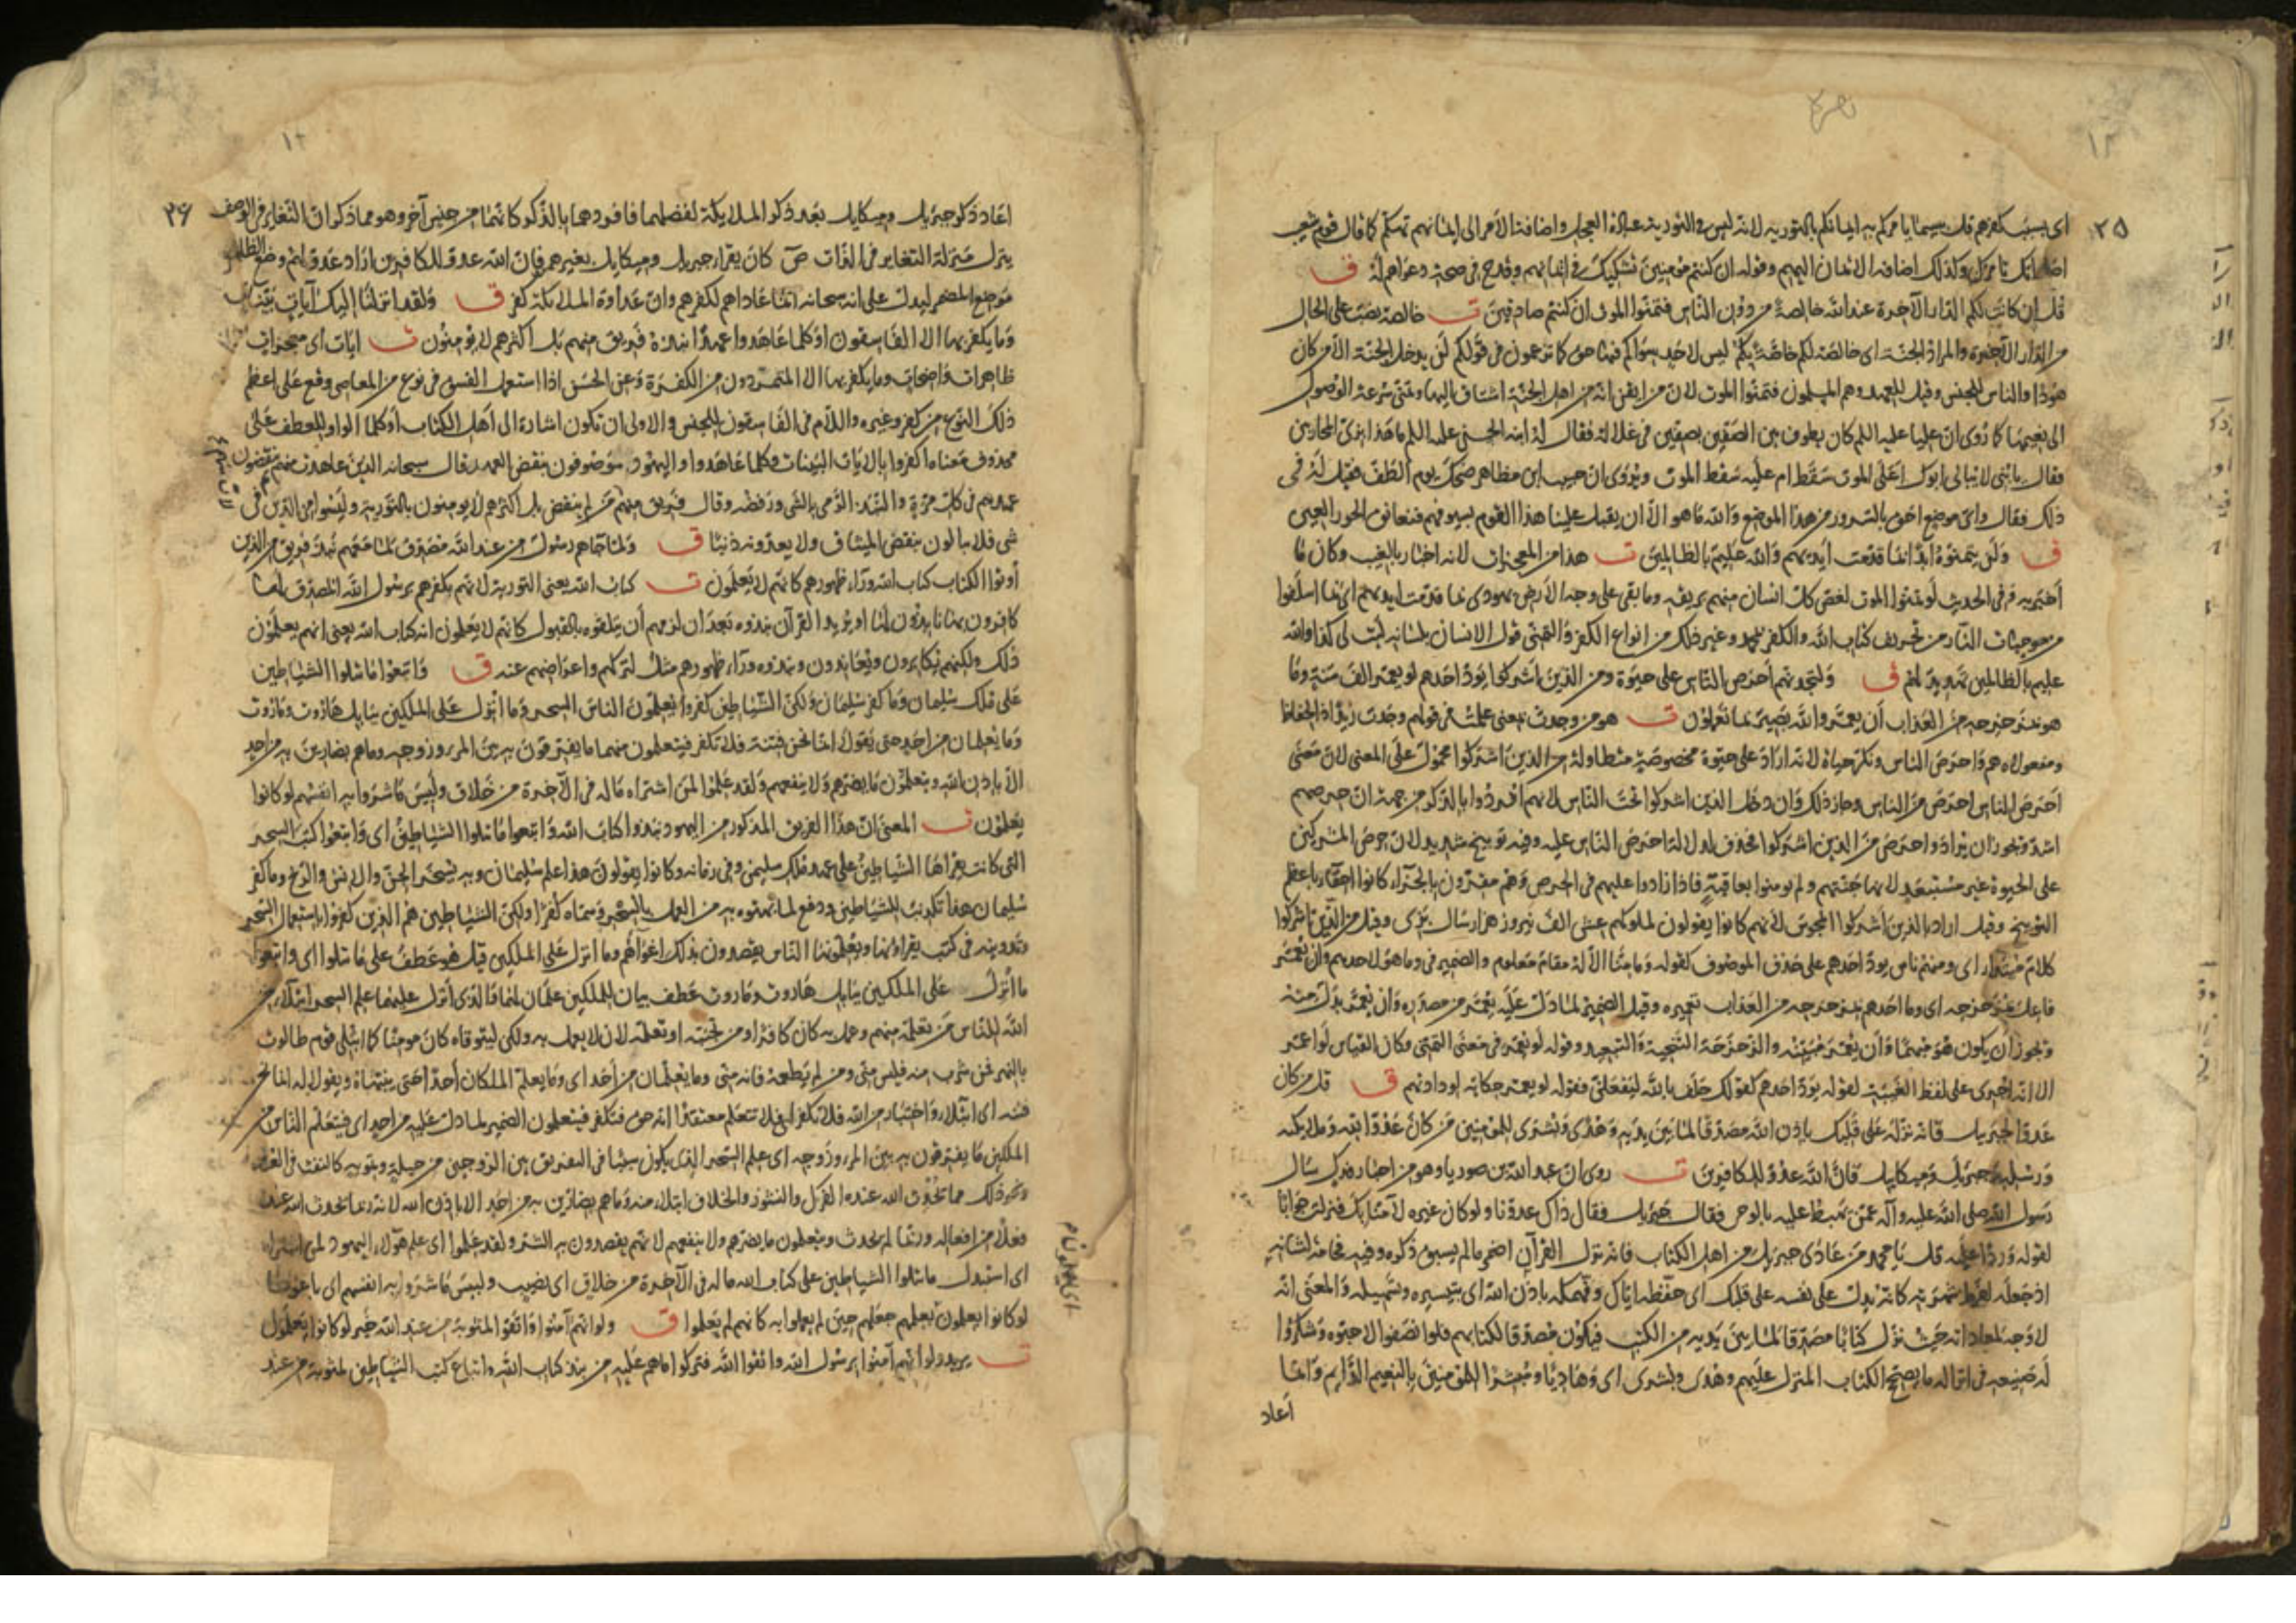 ٢٥
اى بسبب كفرهم قل بئسما يامركم به ايمانكم بالتورية لانه ليس فى التورية عبادة العجل واضافة الامر الى ايمانهم تهكم كما قال قوم شعيب
تامرك وكذلك اضافة الايمان اليهم وقوله ان كنتم مؤمنين تشكيك فى ايمانهم وقدح فى صحة دعواهم له ق
قل ان كانت لكم الدار الآخرة عند الله خالصة من دون الناس فتمنوا الموت ان كنتم صادقين ت خالصة نصب على الحال
من الدار الآخرة والمراد الجنة اى خالصة لكم خاصة بكم ليس لاحد سواكم فيها حق كما تزعمون فى قولكم لن يدخل الجنة الا من كان
هودا والناس للجنس وقيل للعهد وهم المسلمون فتمنوا الموت لان من ايقن انه من اهل الجنة اشتاق اليها وتمنى سرعة الوصول
الى نعيمها كما روى ان عليا عليه السلم كان يطوف بين الصفين بصفين فى غلالة فقال له ابنه الحسن عليه السلم ما هذا بزى المحاربين
فقال يا بنى لا يبالى ابوك اعلى الموت سقط ام عليه سقط الموت ويروى ان حبيب ابن مظاهر ضحك يوم الطف فقيل له فى
ذلك فقال واى موضع احق بالسرور من هذا الموضع والله ما هو الا ان يقبل علينا هذا القوم بسيوفهم فنعانق الحور العين
ق ولن يتمنوه ابدا بما قدمت ايديهم والله عليم بالظالمين ت هذا من المعجزات لانه اخبار بالغيب وكان كما
اخبر به وفى الحديث لو تمنوا الموت لغص كل انسان منهم بريقه وما بقى على وجه الارض يهودى بما قدمت ايديهم اى بما اسلفوا
من موجبات النار من تحريف كتاب الله والكفر بمحمد وغير ذلك من انواع الكفر والتمنى قول الانسان بلسانه ليت لى كذا والله
عليم بالظالمين تهديد لهم ق ولتجدنهم احرص الناس على حيوة ومن الذين اشركوا يود احدهم لو يعمر الف سنة وما
هو بمزحزحه من العذاب ان يعمر والله بصير بما تعملون ت هو من وجدت بمعنى علمت فى قولهم وجدت زيدا ذا الحفاظ
ومفعولاه هم واحرص الناس ونكر حياة لانه اراد على حيوة مخصوصة متطاولة من الذين اشركوا محمول على المعنى لان معنى
احرص الناس احرص من الناس وجاز ذلك وان دخل الذين اشركوا تحت الناس لانهم افردوا بالذكر من جهة ان حرصهم
اشد ويجوز ان يراد واحرص من الذين اشركوا فحذف لدلالة احرص الناس عليه وفيه توبيخ شديد لان حرص المشركين
على الحيوة غير مستبعد لانها جنتهم ولم يؤمنوا بعاقبة فاذا زادوا عليهم فى الحرص وهم مقرون بالجزاء كانوا احقاء باعظم
التوبيخ وقيل اراد بالذين اشركوا المجوس لانهم كانوا يقولون لملوكهم عش الف نيروز هزار سال بزى وقيل من الذين اشركوا
كلام مبتدأ اى ومنهم ناس يود احدهم على حذف الموصوف كقوله وما منا الا له مقام معلوم والضمير فى وما هو لاحدهم وان يعمر
فاعل بمزحزحه اى وما احدهم بمزحزحه من العذاب تعميره وقيل الضمير لما دل عليه يعمر من مصدره وان يعمر بدل منه
ويجوز ان يكون هو مبهما وان يعمر مبينه والزحزحة التنحية والتبعيد وقوله لو يعمر فى معنى التمنى وكان القياس لو اعمر
الا انه اجرى على لفظ الغيبة لقوله يود احدهم كقولك حلف بالله ليفعلن فقوله لو يعمر حكاية لودادتهم ق قل من كان
عدوا لجبريل فانه نزله على قلبك باذن الله مصدقا لما بين يديه وهدى وبشرى للمؤمنين من كان عدوا لله وملائكته
ورسله وجبريل وميكايل فان الله عدو للكافرين ت روى ان عبد الله بن صوريا وهو من احبار فدك سال
رسول الله صلى الله عليه وآله عمن يهبط عليه بالوحى فقال جبريل فقال ذاك عدونا ولو كان غيره لآمنا بك فنزلت جوابا
لقوله وردا عليه قل يا محمد من عادى جبريل من اهل الكتاب فانه نزل القرآن اضمر ما لم يسبق ذكره وفيه فخامة لشانه
اذ جعله لفرط شهرته كانه يدل على نفسه على قلبك اى حفظه اياك وفهمكه باذن الله اى بتيسيره وتسهيله والمعنى انه
لا وجه لمعاداته حيث نزل كتابا مصدقا لما بين يديه من الكتب فيكون مصدقا لكتابهم فلو انصفوا لاحبوه وشكروا
له صنيعه فى انزاله ما يصحح الكتاب المنزل عليهم وهدى وبشرى اى وهاديا ومبشرا للمؤمنين بالنعيم الدايم وانما
اعاد
٢۶
اعاد ذكر جبريل وميكايل بعد ذكر الملايكة لفضلهما فافردهما بالذكر كانهما من جنس آخر وهو مما ذكر ان التغاير فى الوصف
ينزل منزلة التغاير فى الذات ص كان يقراء جبريل وميكايل بغير همز فان الله عدو للكافرين اراد عدو لهم وضع الظاهر
موضع المضمر ليدل على انه سبحانه انما عاداهم لكفرهم وان عداوة الملايكة كفر ق ولقد انزلنا اليك آيات بينات
وما يكفر بها الا الفاسقون اوكلما عاهدوا عهدا نبذه فريق منهم بل اكثرهم لا يؤمنون ت ايات اى معجزات
ظاهرات واضحات وما يكفر بها الا المتمردون من الكفرة وعن الحسن اذا استعمل الفسق فى نوع من المعاصى وقع على اعظم
ذلك النوع من كفر وغيره واللام فى الفاسقون للجنس والاولى ان تكون اشارة الى اهل الكتاب اوكلما الواو للعطف على
محذوف معناه اكفروا بالايات البينات وكلما عاهدوا واليهود موصوفون بنقض العهد قال سبحانه الذين عاهدت منهم ثم ينقضون
عهدهم فى كل مرة والنبذ الرمى بالشى ورفضه وقال فريق منهم من لم ينقض بل اكثرهم لا يومنون بالتورية وليسوا من الدين فى
شى فلا يبالون بنقض الميثاق ولا يعدونه ذنبا ق ولما جاءهم رسول من عند الله مصدق لما معهم نبذ فريق من الذين
أوتوا الكتاب كتاب الله وراء ظهورهم كانهم لا يعلمون ت كتاب الله يعنى التورية لانهم بكفرهم برسول الله المصدق لها
كافرون بها نابذون لها او يريد القرآن نبذوه بعد ان لزمهم أن يتلقوه بالقبول كانهم لا يعلمون انه كتاب الله يعنى انهم يعلمون
ذلك ولكنهم يكابرون ويعاندون ونبذوه وراء ظهورهم مثل لتركهم واعراضهم عنه ق واتبعوا ما تتلوا الشياطين
على ملك سليمان وما كفر سليمان ولكن الشياطين كفروا يعلمون الناس السحر وما انزل على الملكين ببابل هاروت وماروت
وما يعلمان من احد حتى يقولا انما نحن فتنة فلا تكفر فيتعلمون منهما ما يفرقون به بين المرء وزوجه وما هم بضارين به من احد
الا باذن الله ويتعلمون ما يضرهم ولا ينفعهم ولقد علموا لمن اشتراه ماله فى الآخرة من خلاق ولبئس ما شروا به انفسهم لو كانوا
يعلمون ت المعنى ان هذا الفريق المذكور من اليهود نبذوا كتاب الله واتبعوا ما تتلوا الشياطين اى واتبعوا كتب السحر
التى كانت يقراها الشياطين على عهد ملك سليمن وفى زمانه وكانوا يقولون هذا علم سليمان وبه يسخر الجن والانس والريح وما كفر
سليمان هذا تكذيب للشياطين ودفع لما بهتوه به من العمل بالسحر وسماه كفرا ولكن الشياطين هم الذين كفروا باستعمال السحر
وتدوينه فى كتب يقراونها ويعلمونها الناس يقصدون بذلك اغواءهم وما انزل على الملكين قيل هو عطف على ما تتلوا اى واتبعوا
ما انزل على الملكين ببابل هاروت وماروت عطف بيان للملكين علمان لهما والذى انزل عليهما علم السحر ابتلاء من
الله للناس من تعلمه منهم وعمل به كان كافرا ومن تجنبه او تعلمه لان لا يعمل به ولكن ليتوقاه كان مومنا كما ابتلى قوم طالوت
بالنهر فمن شرب منه فليس منى ومن لم يطعمه فانه منى وما يعلمان من أحد اى وما يعلم الملكان أحدا حتى ينبهاه ويقولا له انما نحن
فتنة اى ابتلاء واختبار من الله فلا تكفر اى فلا تتعلم معتقدا انه حق فتكفر فيتعلمون الضمير لما دل عليه من احد اى فيتعلم الناس من
الملكين ما يفرقون به بين المرء وزوجه اى علم السحر الذى يكون سببا فى التفريق بين الزوجين من حيلة وتمويه كالنفث فى العقد
ونحو ذلك مما يحدث الله عنده الفرك والنشوز والخلاف ابتلاء منه وما هم بضارين به من احد الا باذن الله لانه ربما يحدث الله عنده
فعلا من افعاله وربما لم يحدث ويتعلمون ما يضرهم ولا ينفعهم لانهم يقصدون به الشر ولقد علموا اى علم هؤلاء اليهود لمن اشتراه
اى استبدل ما تتلوا الشياطين على كتاب الله ماله فى الآخرة من خلاق اى نصيب ولبئس ما شروا به انفسهم اى باعوها
لو كانوا يعلمون بعلمهم جعلهم حين لم يعملوا به كانهم لم يعلموا ق ولو انهم آمنوا واتقوا لمثوبة من عند الله خير لو كانوا يعلمون
ت يريد ولو انهم آمنوا برسول الله واتقوا الله فتركوا ما هم عليه من نبذ كتاب الله واتباع كتب الشياطين لمثوبة من عند